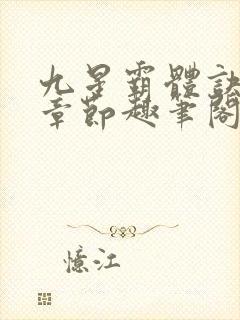 九星霸體訣
章節趣筆閣
憶江